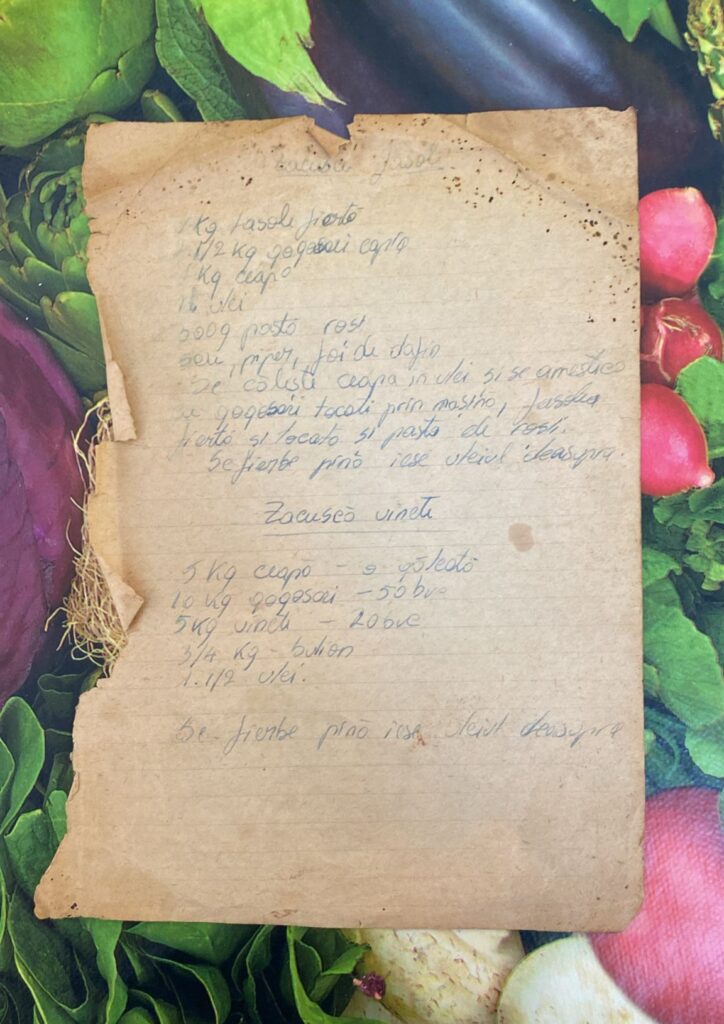 Zacuscă fasole
1 kg fasole fiartă
1 1/2 kg gogoșari copți
1 kg ceapă
1 l ulei
500g pastă roșii
sare, piper, foi de dafin
Se călești ceapa in ulei si se amestecă
cu gogoșari tocați prin mașină, fasolea
fiartă si tocată si pasta de rosii.
Se fierbe pînă iese uleiul deasupra.
Zacuscă vinete
5 kg ceapă - o găleată
10 kg gogoșari - 50 buc
5 kg vinete - 20 buc
3/4 kg - bulion
1.1/2 ulei.
Se fierbe pînă iese uleiul deasupra